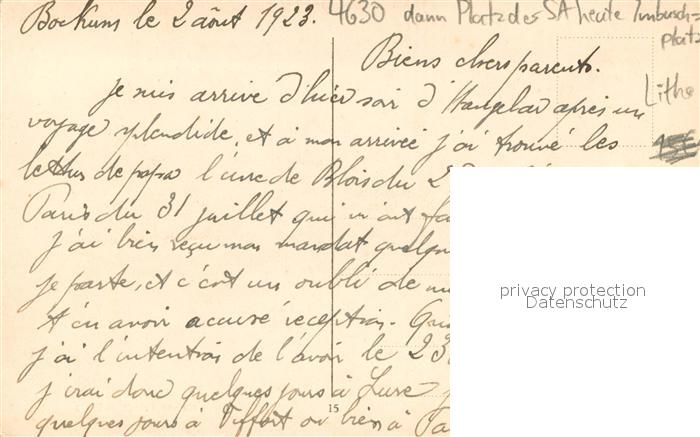 Bochum le 2 août 1923.
4630 dann Platz des SA heute Imbusch-
platz
Litho
Biens chers parents.
Je suis arrivé d'hier soir d'Hangelar après un
voyage splendide, et à mon arrivée j'ai trouvé les
lettres de papa l'une de Blois du 2
Paris du 31 juillet qui m'ont fa
j'ai bien reçu mon mandat quelqu
je parte, et c'est un oubli de m
t'en avoir accusé réception. Qua
j'ai l'intention de l'avoir le 23
j'irai donc quelques jours à Lure
quelques jours à ou bien à Pa
15
privacy protection
Datenschutz